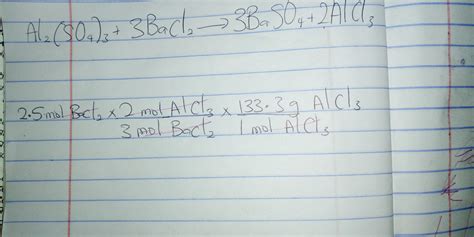 Al₂(SO₄)₃ + 3BaCl₂ → 3BaSO₄ + 2AlCl₃
2.5mol BaCl₂ × 2 mol AlCl₃ × 133.3g AlCl₃
3 mol BaCl₂ 1 mol AlCl₃